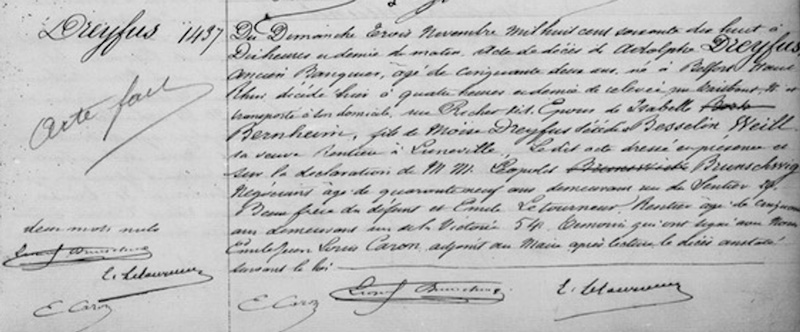 Dreyfus 1437
acte fait
Du Dimanche Trois Novembre mil huit cent soixante dix huit à
Dix heures et demie du matin, acte de décès de Adolphe Dreyfus,
Ancien Banquier, âgé de cinquante deux ans, né à Belfort Haut
Rhin décédé hier à quatre heures et demie de relevée
transporté à son domicile, rue Rochechst. Epoux de Isabelle
Bernheim, fils de Moïse Dreyfus décédé et Besselin Weill
sa veuve Rentière à Luneville. Le dit acte dressé en présence et
sur la déclaration de MM. Léopold Brunschwig Brunschvig
Négociant âgé de quarante neuf ans demeurant rue du Sentier 24.
Beau frère du défunt et Emile Letourneur, Rentier âgé de cinquante
ans demeurant rue de la Victoire 54. Témoins qui ont signé avec Nous
Emile Louis Caron, adjoint au Maire après lecture, le décès constaté
suivant la loi
deux mots nuls
E. Letourneur
E. Caron
E. Caron
E. Letourneur